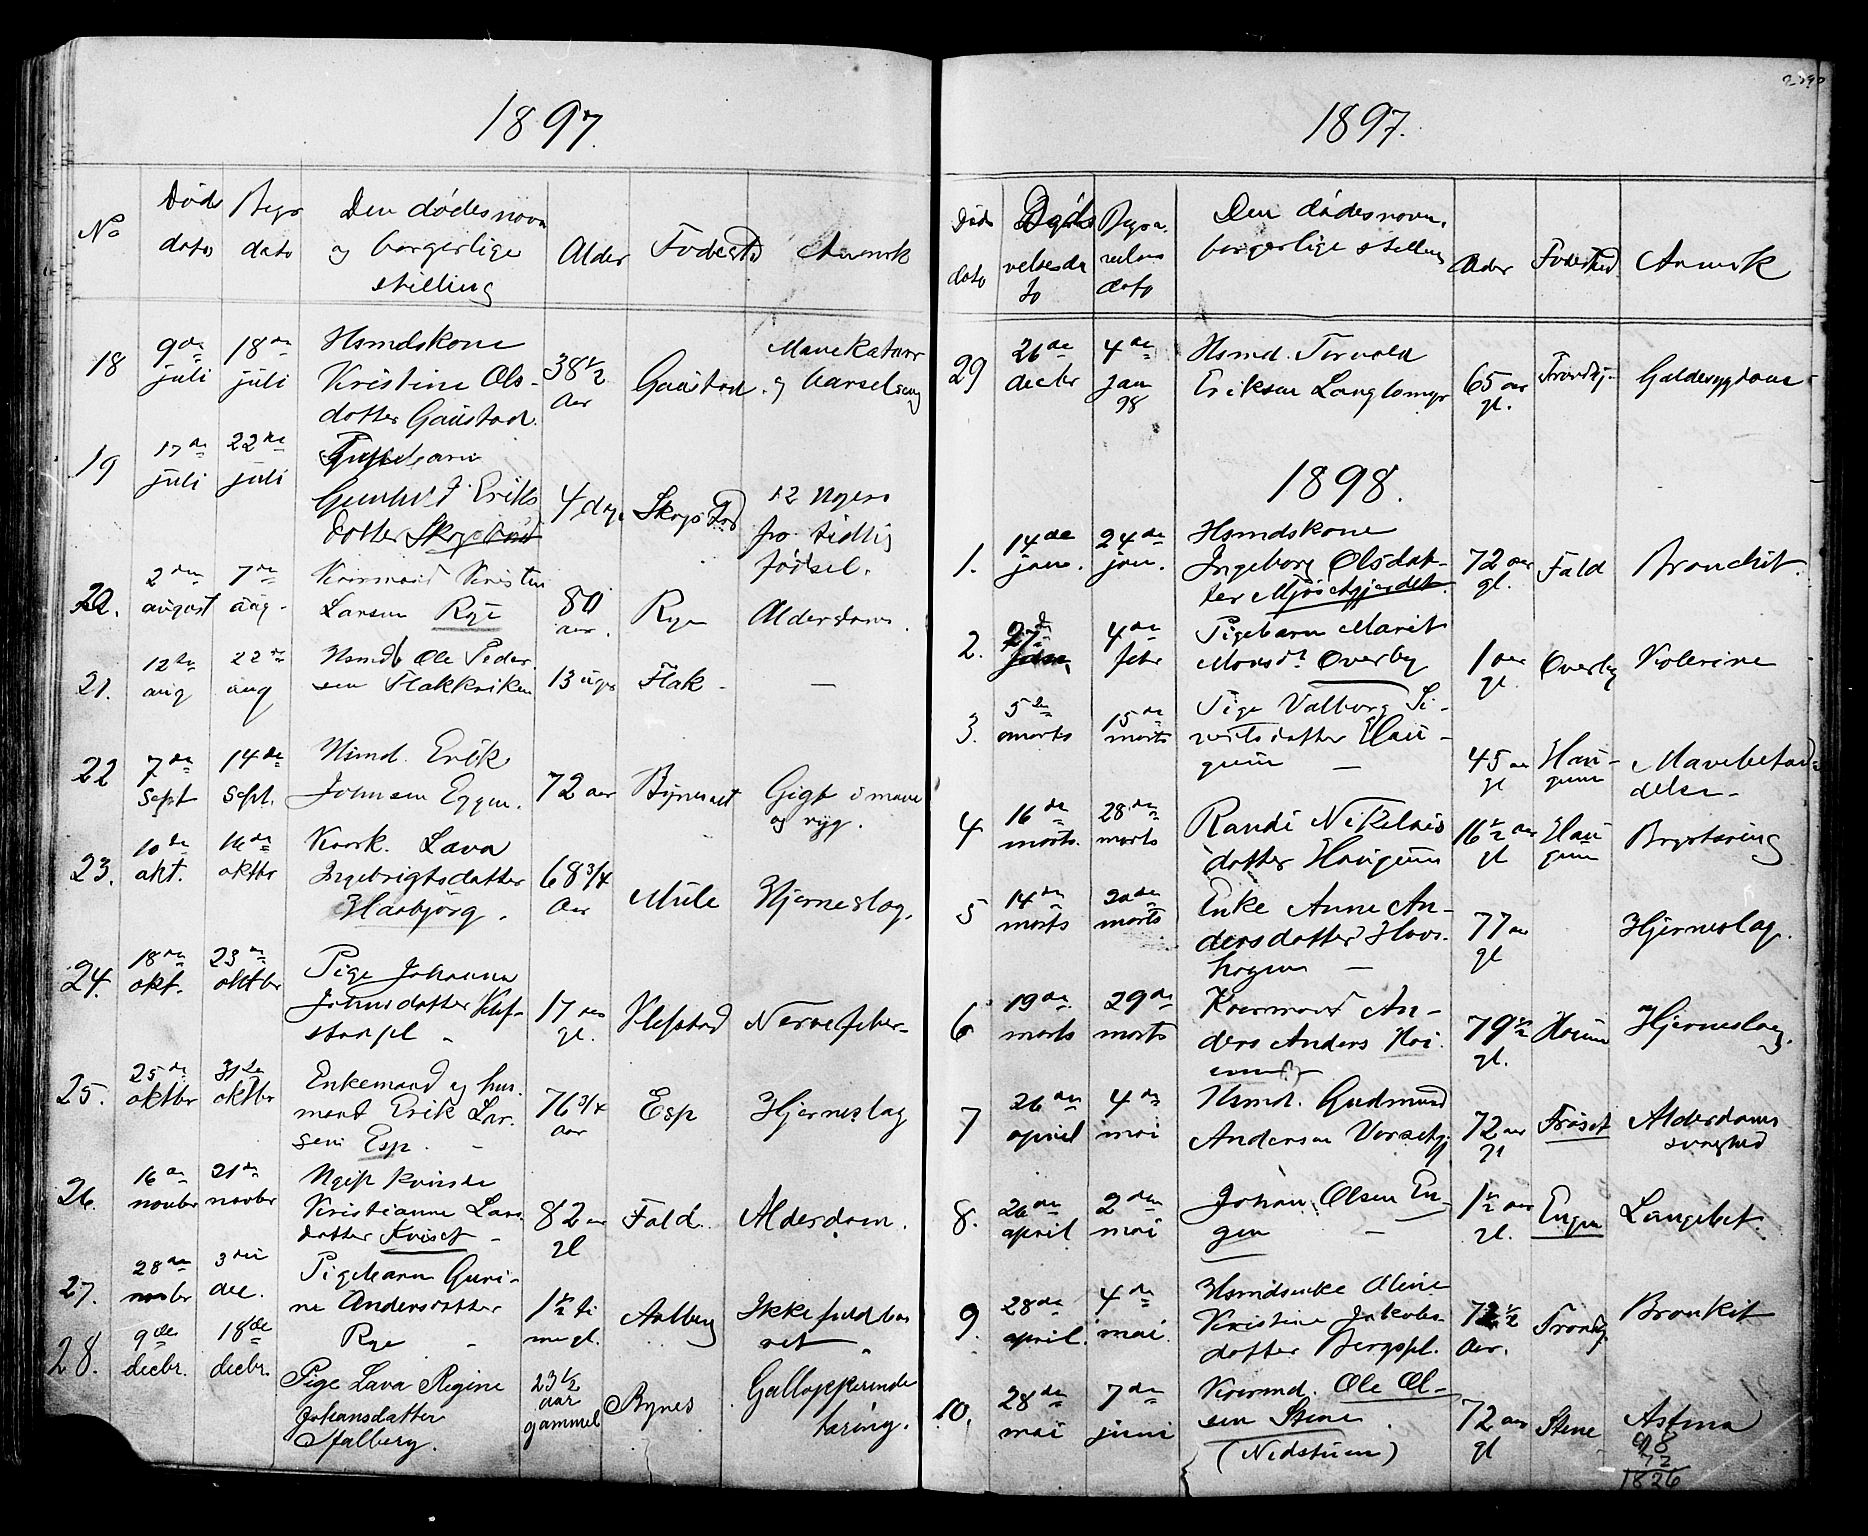 1897.
No
Døds dato
Begr dato
Den dødes navn og borgerlige stilling
Alder
Fødested
Anmerk
18 9de juli 18de juli Hsmdskone
Kristine Ols-
datter Gaustad. 38 1/2 Aar Gaustad. Mavekatarr
og barselseng
19 17de juli 22de juli Pigebarn
Gunhild Eriks
datter Skogstad 4 dage Skogstad 12 Uger
for tidlig
fødsel.
20. 2den august 7de aug. Kaarmand Kristen
Larsen Rye 80 aar. Rye Alderdom.
21. 12te aug 22de aug Hsmdb Ole Peder
sen Flakkviken 13 uger Flak - —
22 7de sept 14de sept. Hsmd. Erik
Johnsen Eggen. 72 aar Bynesset Gigt i mave
og ryg.
23. 10de okt. 16de oktbr Kaark. Lava
Ingebrigtsdatter
Haabjørg. 68 3/4 Aar Mule Hjerneslag.
24. 18de okt. 23de oktbr Pige Johanna
Johnsdatter Klef-
stadpl 17 aar gl. Klefstad Nervefeber-
25. 25de oktbr 31te oktbr Enkemand og hus
mand Erik Lar.
sen Esp. - 76 3/4 aar Esp Hjerneslag
26. 16de novbr 21de novbr Ugift kvinde
Kristianna Lars
datter Kviset - 82 aar gl Fald. Alderdom.
27. 28de novbr 3die dec. Pigebarn Guri-
ne Andersdatter
Rye - 1 1/2 ti
me gl. Aalberg Ikke fuldbaa
ret
28. 9de decbr. 18de decbr. Pige Lava Regine
Johansdatter
Stalberg. 23 1/2
aar
gammel Bynes Galloperende
tæring.
1897.
Døds dato
Begra.
velses
dato
Den dødes navn.
borgerlige stilling
Alder
Fødested
Anmerk
29 26de decbr 4de jan 98 Hsmd. Torvald
Eriksen Langlomyr 65 aar gl. Trondhj. Galdesygdom
1898.
1. 14de jan. 24de jan. Hsmdskone
Ingeborg Olsdat-
ter Mjøsetgjerdet. 72 aar gl. Fald Bronchit.
2. 27de jan. 4de febr Pigebarn Marit
Monsdr Overby 1 aar gl. Overby Kolerine
3. 5te marts 15de marts Pige Valborg Si-
vertsdatter Hau-
gum — 45 aar gl Hau-
gum Mavebetæn-
delse-
4 16de marts. 28de marts Randi Nikolais
datter Haugum 16 1/2 aar gl Hau
gum Brysttæring
5 14de marts 20de marts Enke Anne An-
dersdatter Hovs-
hagen — 77 aar gl Hjerneslag.
6 19de marts 29de marts Kaarmand An-
ders Anders Hai. 79 1/2 gl. Hjerneslag.
7 26de april 4de mai Hsmd. Gudmund
Andersen 72 aar gl Frøset Alderdoms
svaghed
8. 26de april 2den mai Johan Olsen En-
gen — 1 1/2 aar gl. Engen Lungebet.
9. 28de april. 4de mai. Hsmdsenke Oline
Kristine Jakobs-
datter Bergspl. 72 1/2 Aar. Trondhj. Bronkit
10. 28de mai 7de juni Kaarmd. Ole Ol-
sen Stene.
(Nedstuen) 72 aar gl Stene Astma
98
72
1826